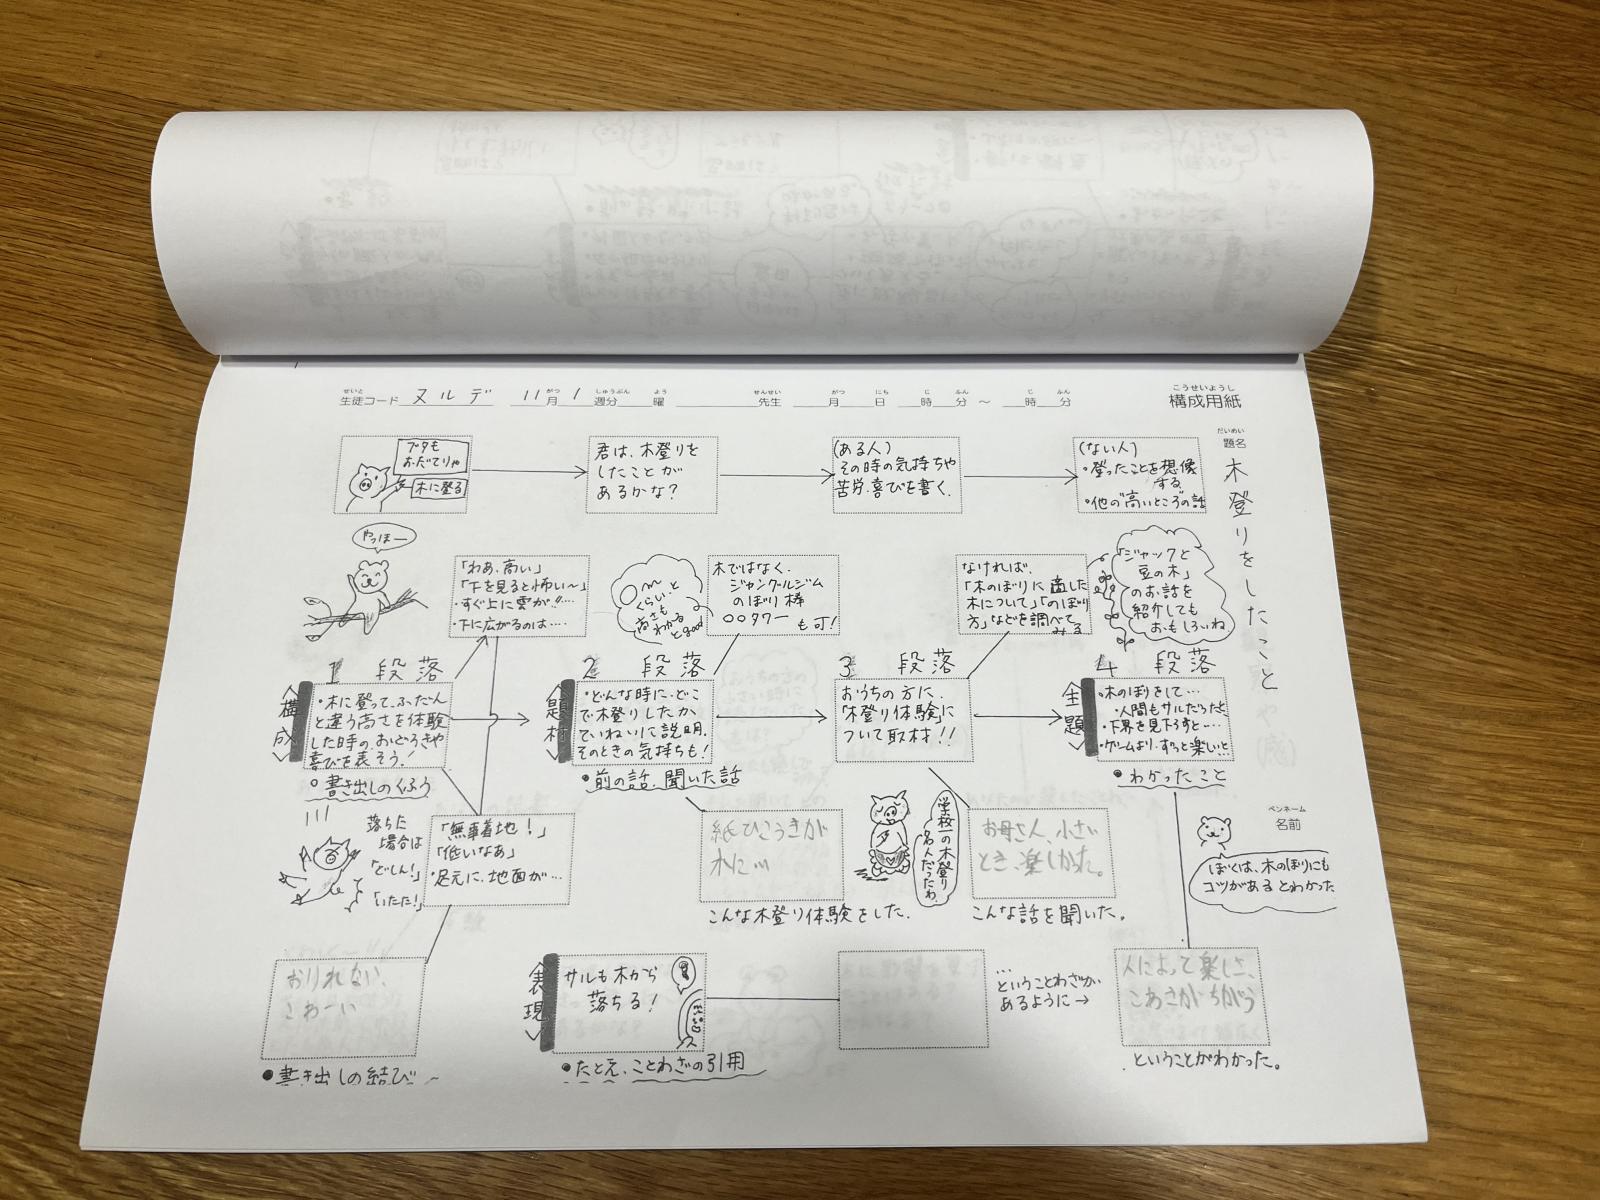 こうせいようし
構成用紙
せいと がつ しゅうぶん よう せんせい がつ にち じ ふん じ ふん
生徒コード ヌルデ 11月 1 週分 曜 先生 月 日 時 分 ～ 時 分
だいめい
題名
木登りをしたこと
や(感)
ブタも
おだてりゃ
木に登る
君は、木登りを
したことが
あるかな?
(ある人)
その時の気持ちや
苦労、喜びを書く。
(ない人)
・登ったことを想像
する
・他の"高いところ"の話
やっほー
「わあ、高い」
「下を見ると怖い～」
・すぐ上に雲が!!…
・下に広がるのは…
〇m
くらい、と
高さも
わかると
good
木ではなく、
ジャングルジム
のぼり棒
〇〇タワー
も可!
なければ、
「木のぼりに適した
木について」「のぼり
方」などを調べて
みる
「ジャックと
豆の木」
のお話を
紹介しても
おもしろいね
1 段落
〈構成〉
・木に登って、ふだん
と違う高さを体験
した時の、おどろきや
喜びを表そう!
〇書き出しのくふう
2 段落
〈題材〉
・どんな時に、どこ
で木登りしたか、
ていねいに説明。
そのときの気持ちも!
・前の話、聞いた話
3 段落
おうちの方に、
「木登り体験」に
ついて取材!!
4 段落
〈主題〉
・木のぼりをして…
人間もサルだったと
・下界を見下ろすと…
・ゲームより、ずっと楽しいと
・わかったこと
落ちた
場合は
「どしん!」
「いたた!」
「無事着地!」
「低いなあ」
・足元に、地面が…
紙ひこうきが
木に…
こんな木登り体験をした。
学校一の木登り
名人だったわ。
お母さん、小さい
とき、楽しかった。
こんな話を聞いた。
ペンネーム
名前
ぼくは、木のぼりにも
コツがあるとわかった
おりれない、
こわーい
・書き出しの結び
〈表現〉
サルも木から
落ちる!
・たとえ、ことわざの引用
…
ということわざが
あるように→
人によって楽しさ、
こわさがちがう
ということがわかった。